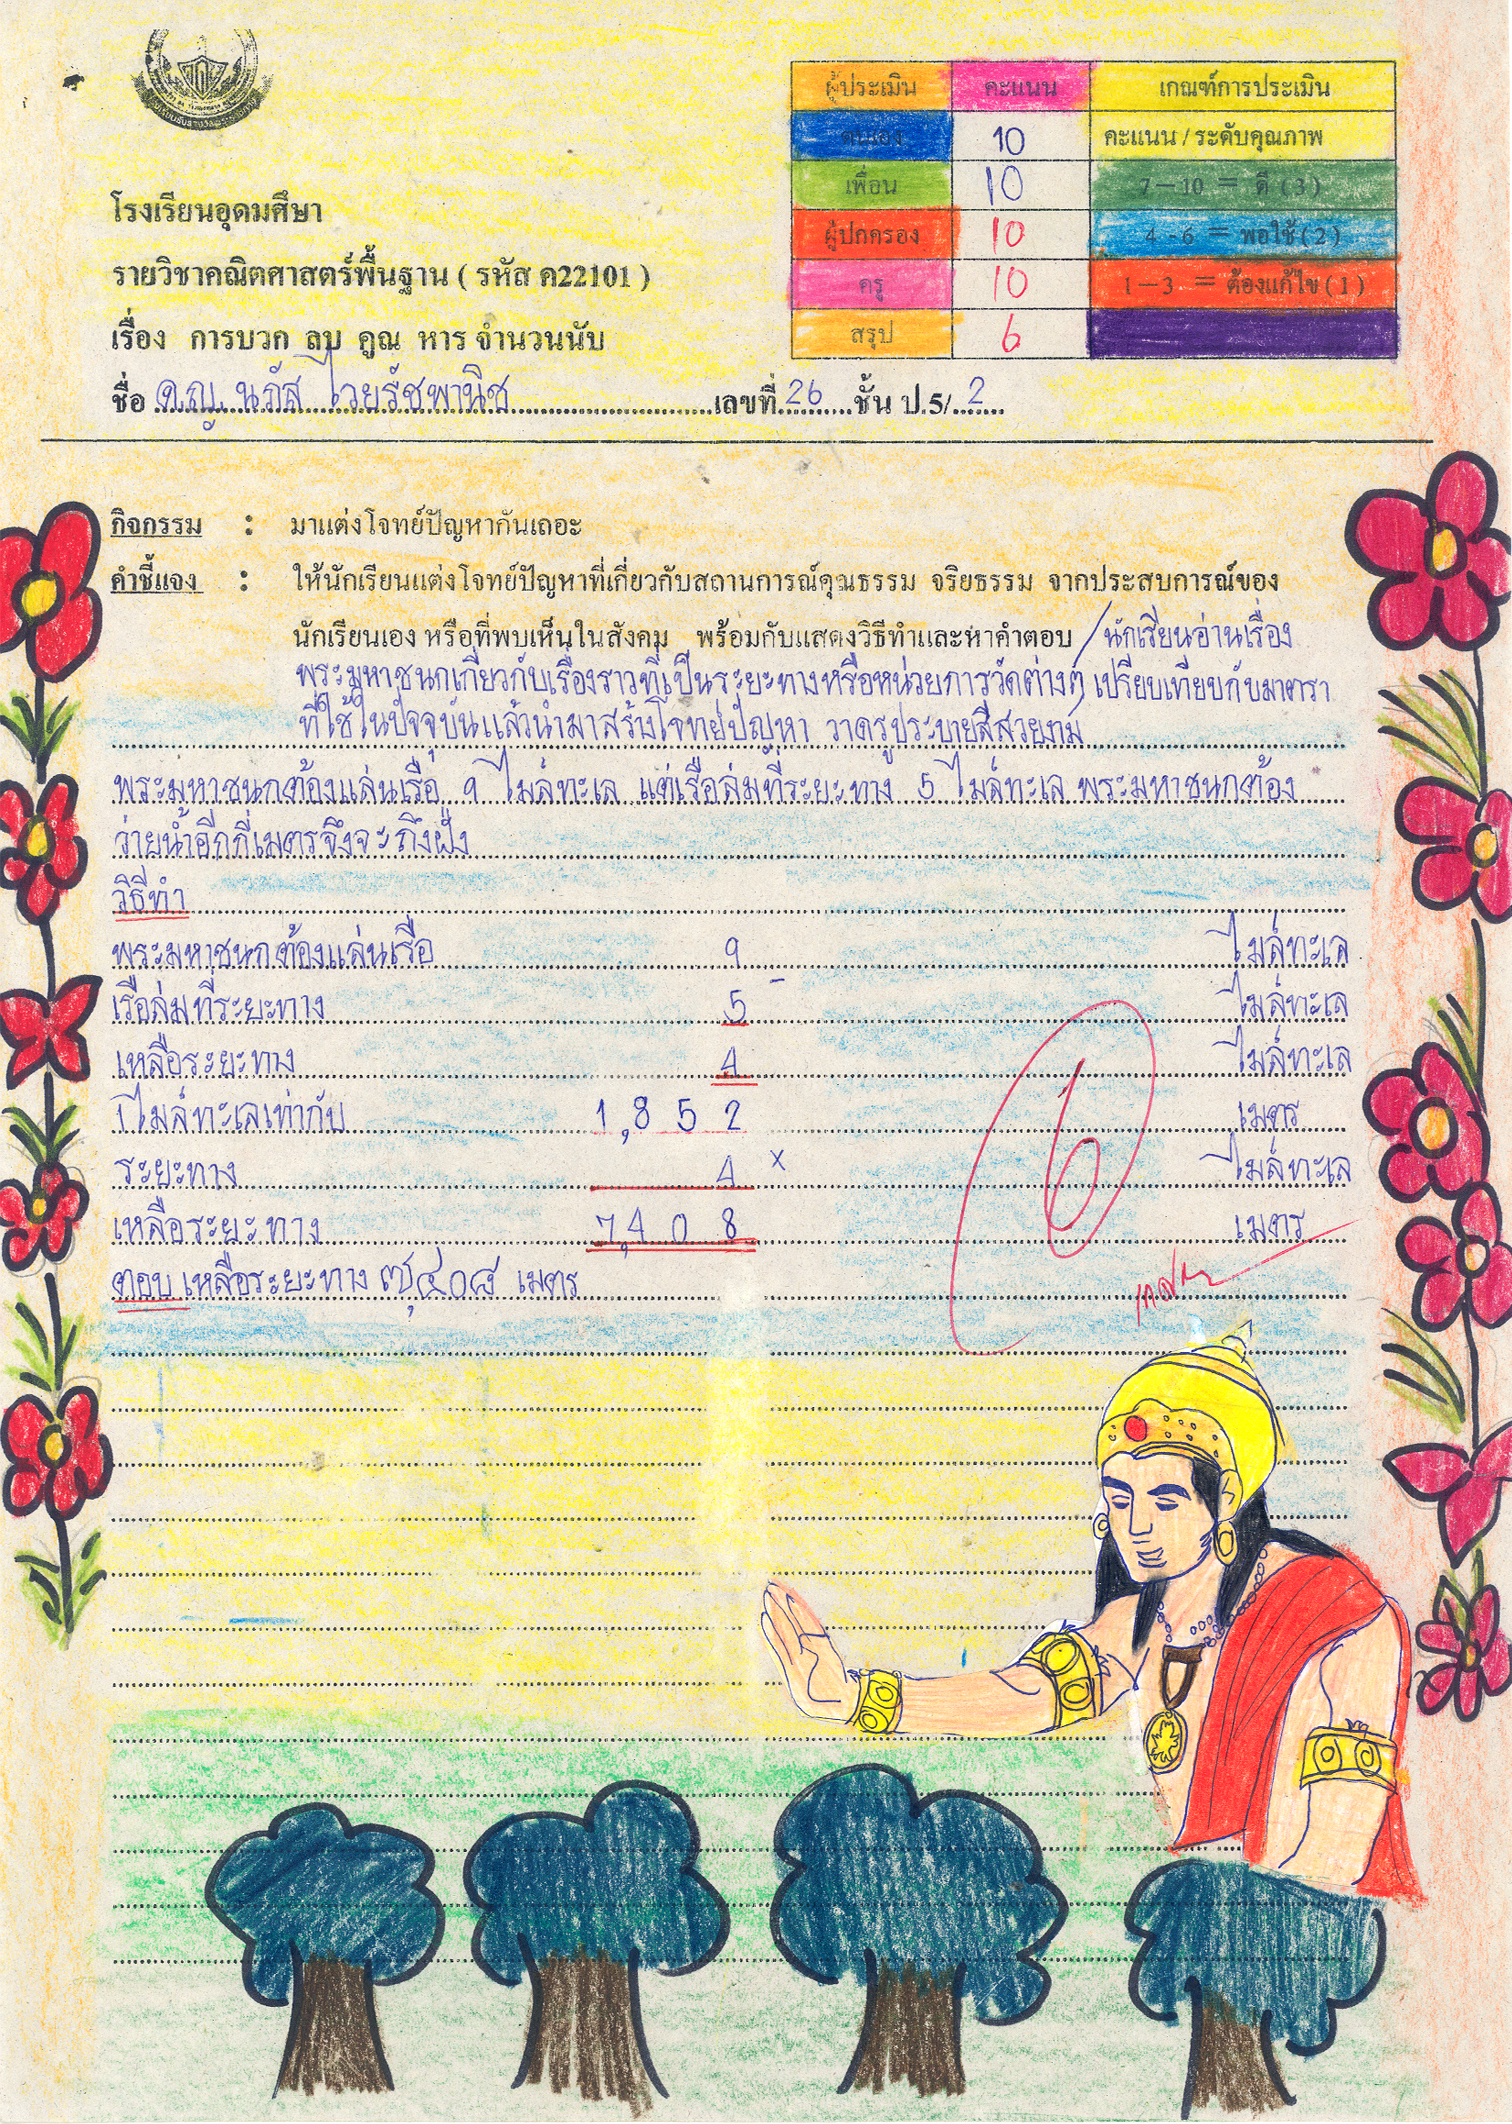 ผู้ประเมิน คะแนน เกณฑ์การประเมิน
ตนเอง 10 คะแนน / ระดับคุณภาพ
เพื่อน 10 7 – 10 = ดี (3)
ผู้ปกครอง 10 4 - 6 = พอใช้ (2)
ครู 10 1 – 3 = ต้องแก้ไข (1)
สรุป 6
โรงเรียนอุดมศึษา
รายวิชาคณิตศาสตร์พื้นฐาน ( รหัส ค22101 )
เรื่อง การบวก ลบ คูณ หาร จำนวนนับ
ชื่อ ด.ญ. นภัส ไวยรัชพานิช เลขที่ 26 ชั้น ป.5/ 2
กิจกรรม : มาแต่งโจทย์ปัญหากันเถอะ
คำชี้แจง : ให้นักเรียนแต่งโจทย์ปัญหาที่เกี่ยวกับสถานการณ์คุณธรรม จริยธรรม จากประสบการณ์ของ
นักเรียนเอง หรือที่พบเห็นในสังคม พร้อมกับแสดงวิธีทำและหาคำตอบ / นักเรียนอ่านเรื่อง
พระมหาชนกเกี่ยวกับเรื่องราวที่เป็นระยะทางหรือหน่วยการวัดต่างๆ เปรียบเทียบกับมาตรา
ที่ใช้ในปัจจุบันแล้วนำมาสร้างโจทย์ปัญหา วาดรูประบายสีสวยงาม
พระมหาชนกต้องแล่นเรือ 9 ไมล์ทะเล แต่เรือล่มที่ระยะทาง 5 ไมล์ทะเล พระมหาชนกต้อง
ว่ายน้ำอีกกี่เมตรจึงจะถึงฝั่ง
วิธีทำ
พระมหาชนกต้องแล่นเรือ 9 ไมล์ทะเล
เรือล่มที่ระยะทาง 5 - ไมล์ทะเล
เหลือระยะทาง 4 ไมล์ทะเล
1 ไมล์ทะเลเท่ากับ 1,852 เมตร
ระยะทาง 4 × ไมล์ทะเล
เหลือระยะทาง 7,408 เมตร
ตอบ เหลือระยะทาง ๗,๔๐๘ เมตร
6